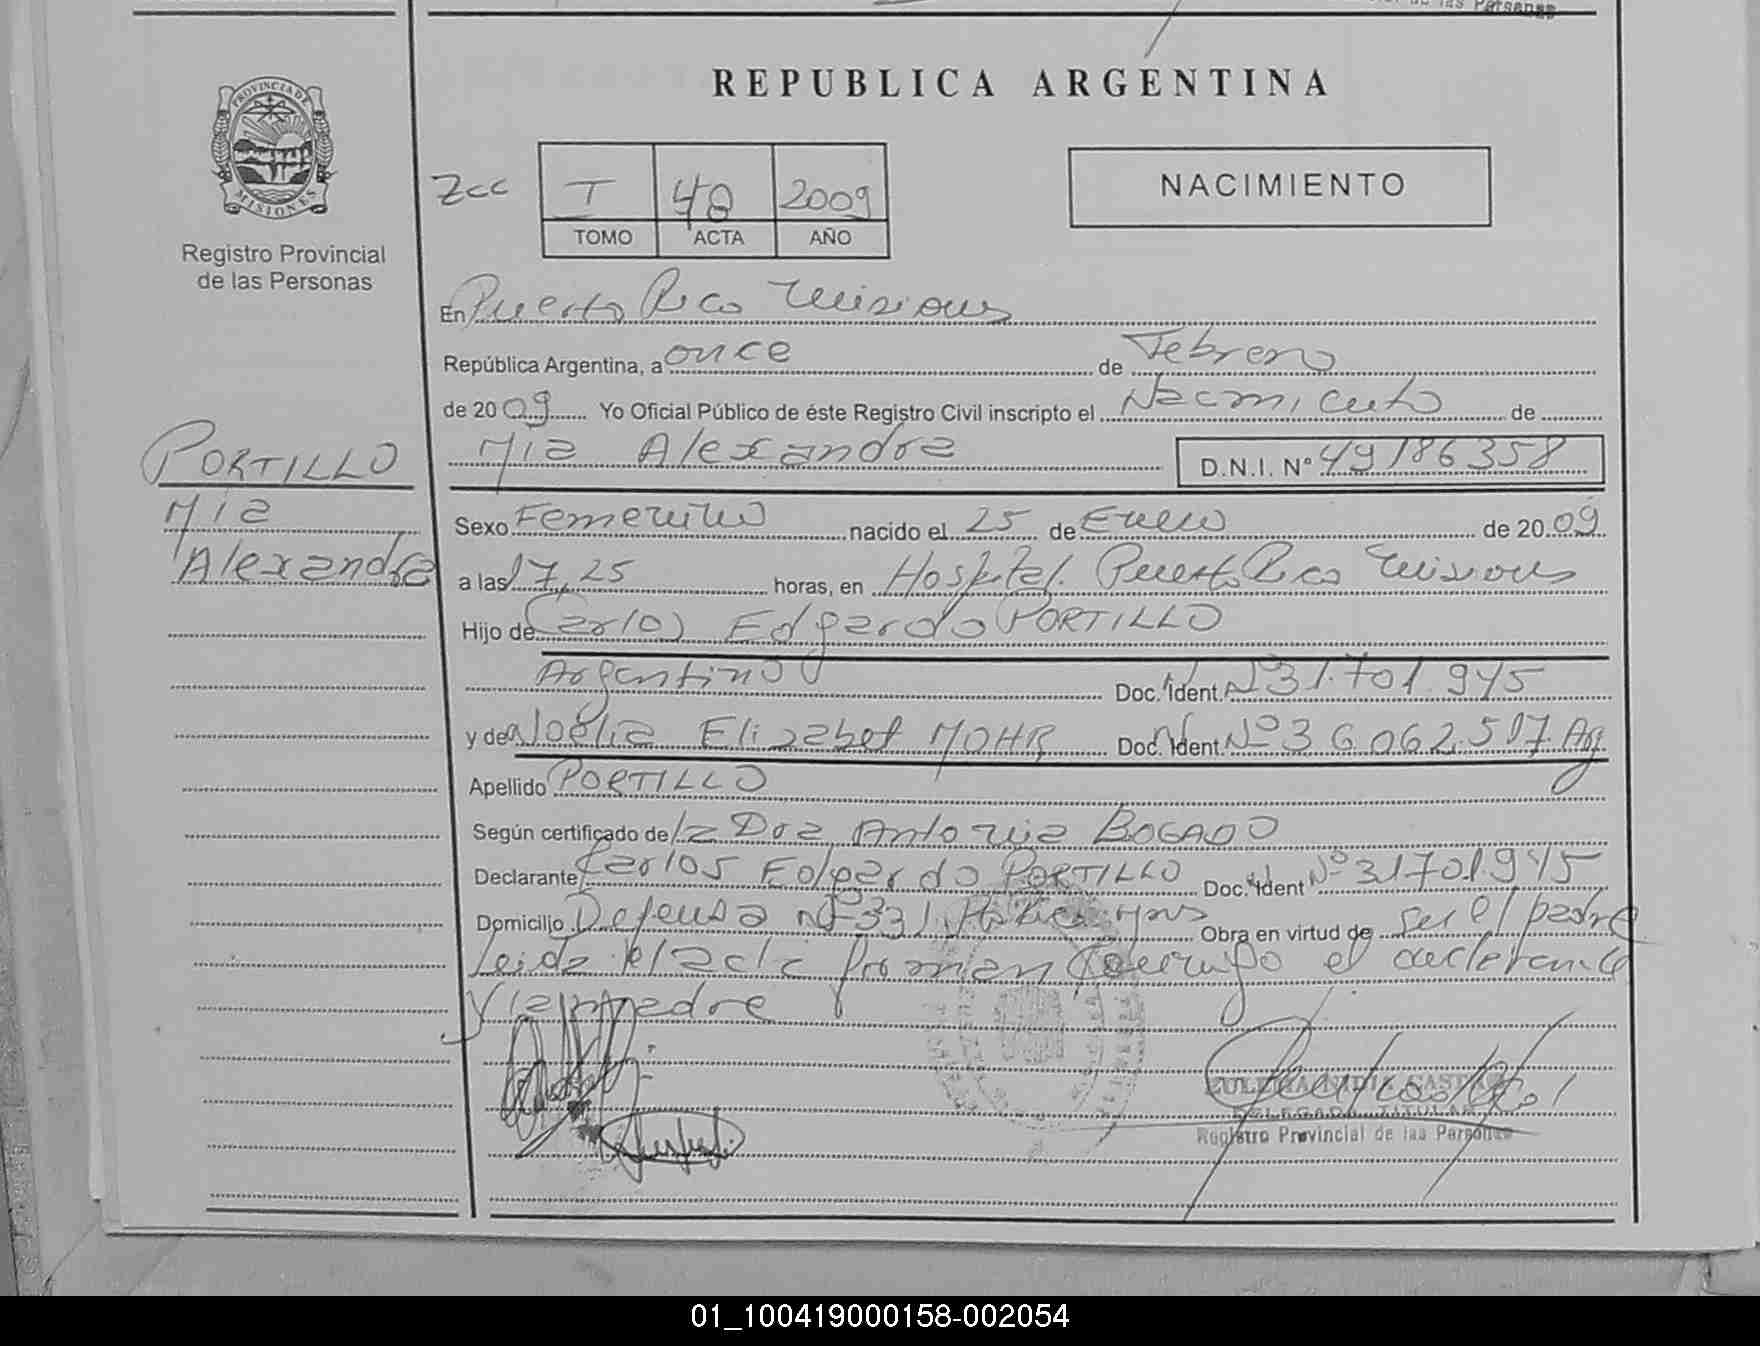 de las Personas
REPUBLICA ARGENTINA
PROVINCIA DE
MISIONES
Registro Provincial
de las Personas
Zcc
I 48 2009
TOMO ACTA AÑO
NACIMIENTO
En Puerto Rico Misiones
República Argentina, a once de Febrero
de 2009 Yo Oficial Público de éste Registro Civil inscripto el Nacimiento de
Mia Alexandra D.N.I. Nº 49186358
PORTILLO
Mia
Alexandra
Sexo Femenino nacido el 25 de Enero de 2009
a las 17,25 horas, en Hospital. Puerto Rico Misiones
Hijo de Carlos Edgardo PORTILLO
Argentino Doc. Ident. Nº 31.701.945
y de Noelia Elizabet MOHR Doc. Ident. Nº 36.062.517. Arg.
Apellido PORTILLO
Según certificado de la Dra Antonia BOGADO
Declarante Carlos Edgardo PORTILLO Doc. Ident Nº 31701945
Domicilio Defensa Nº 331 Obra en virtud de ser el padre
Leida el acta firman conmigo el declarante
y la madre
DELEGADA TITULAR
Registro Provincial de las Personas
01_100419000158-002054